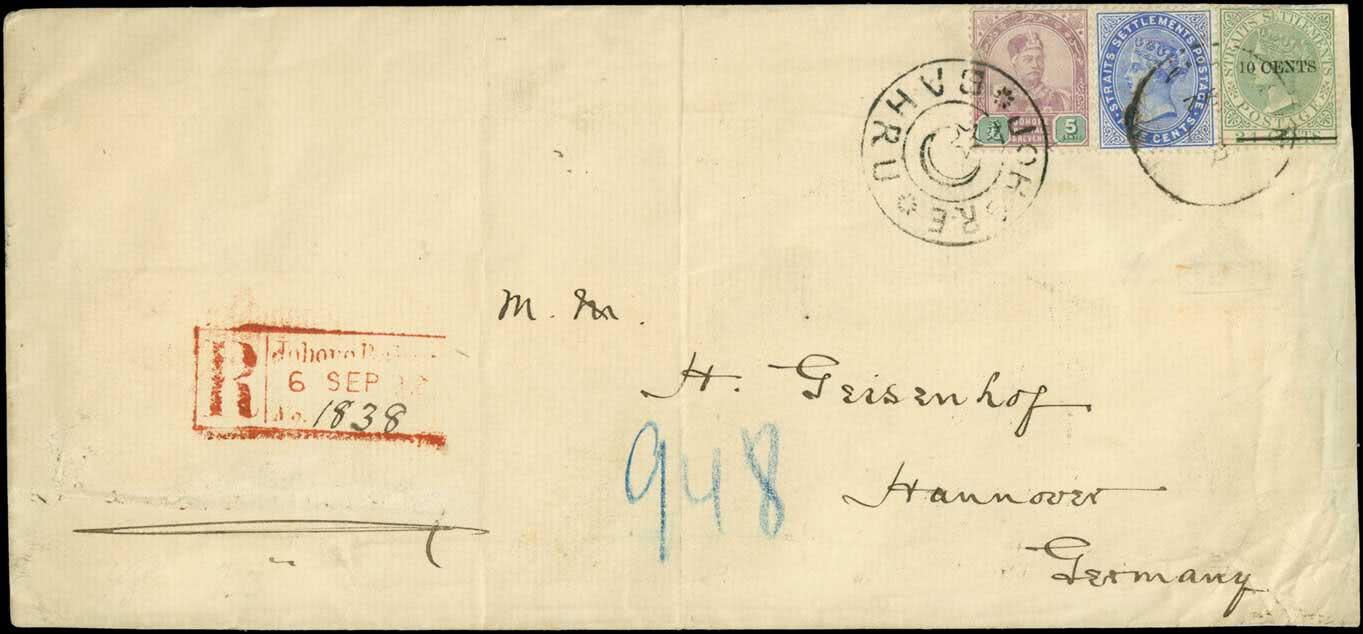 STRAITS SETTLEMENTS POSTAGE
CENTS
STRAITS SETTLEMENTS
10 CENTS
POSTAGE
5
JOHORE BAHRU
R
Johore
6 SEP
No. 1838
M. M.
H. Geisenhof
948
Hannover
Germany